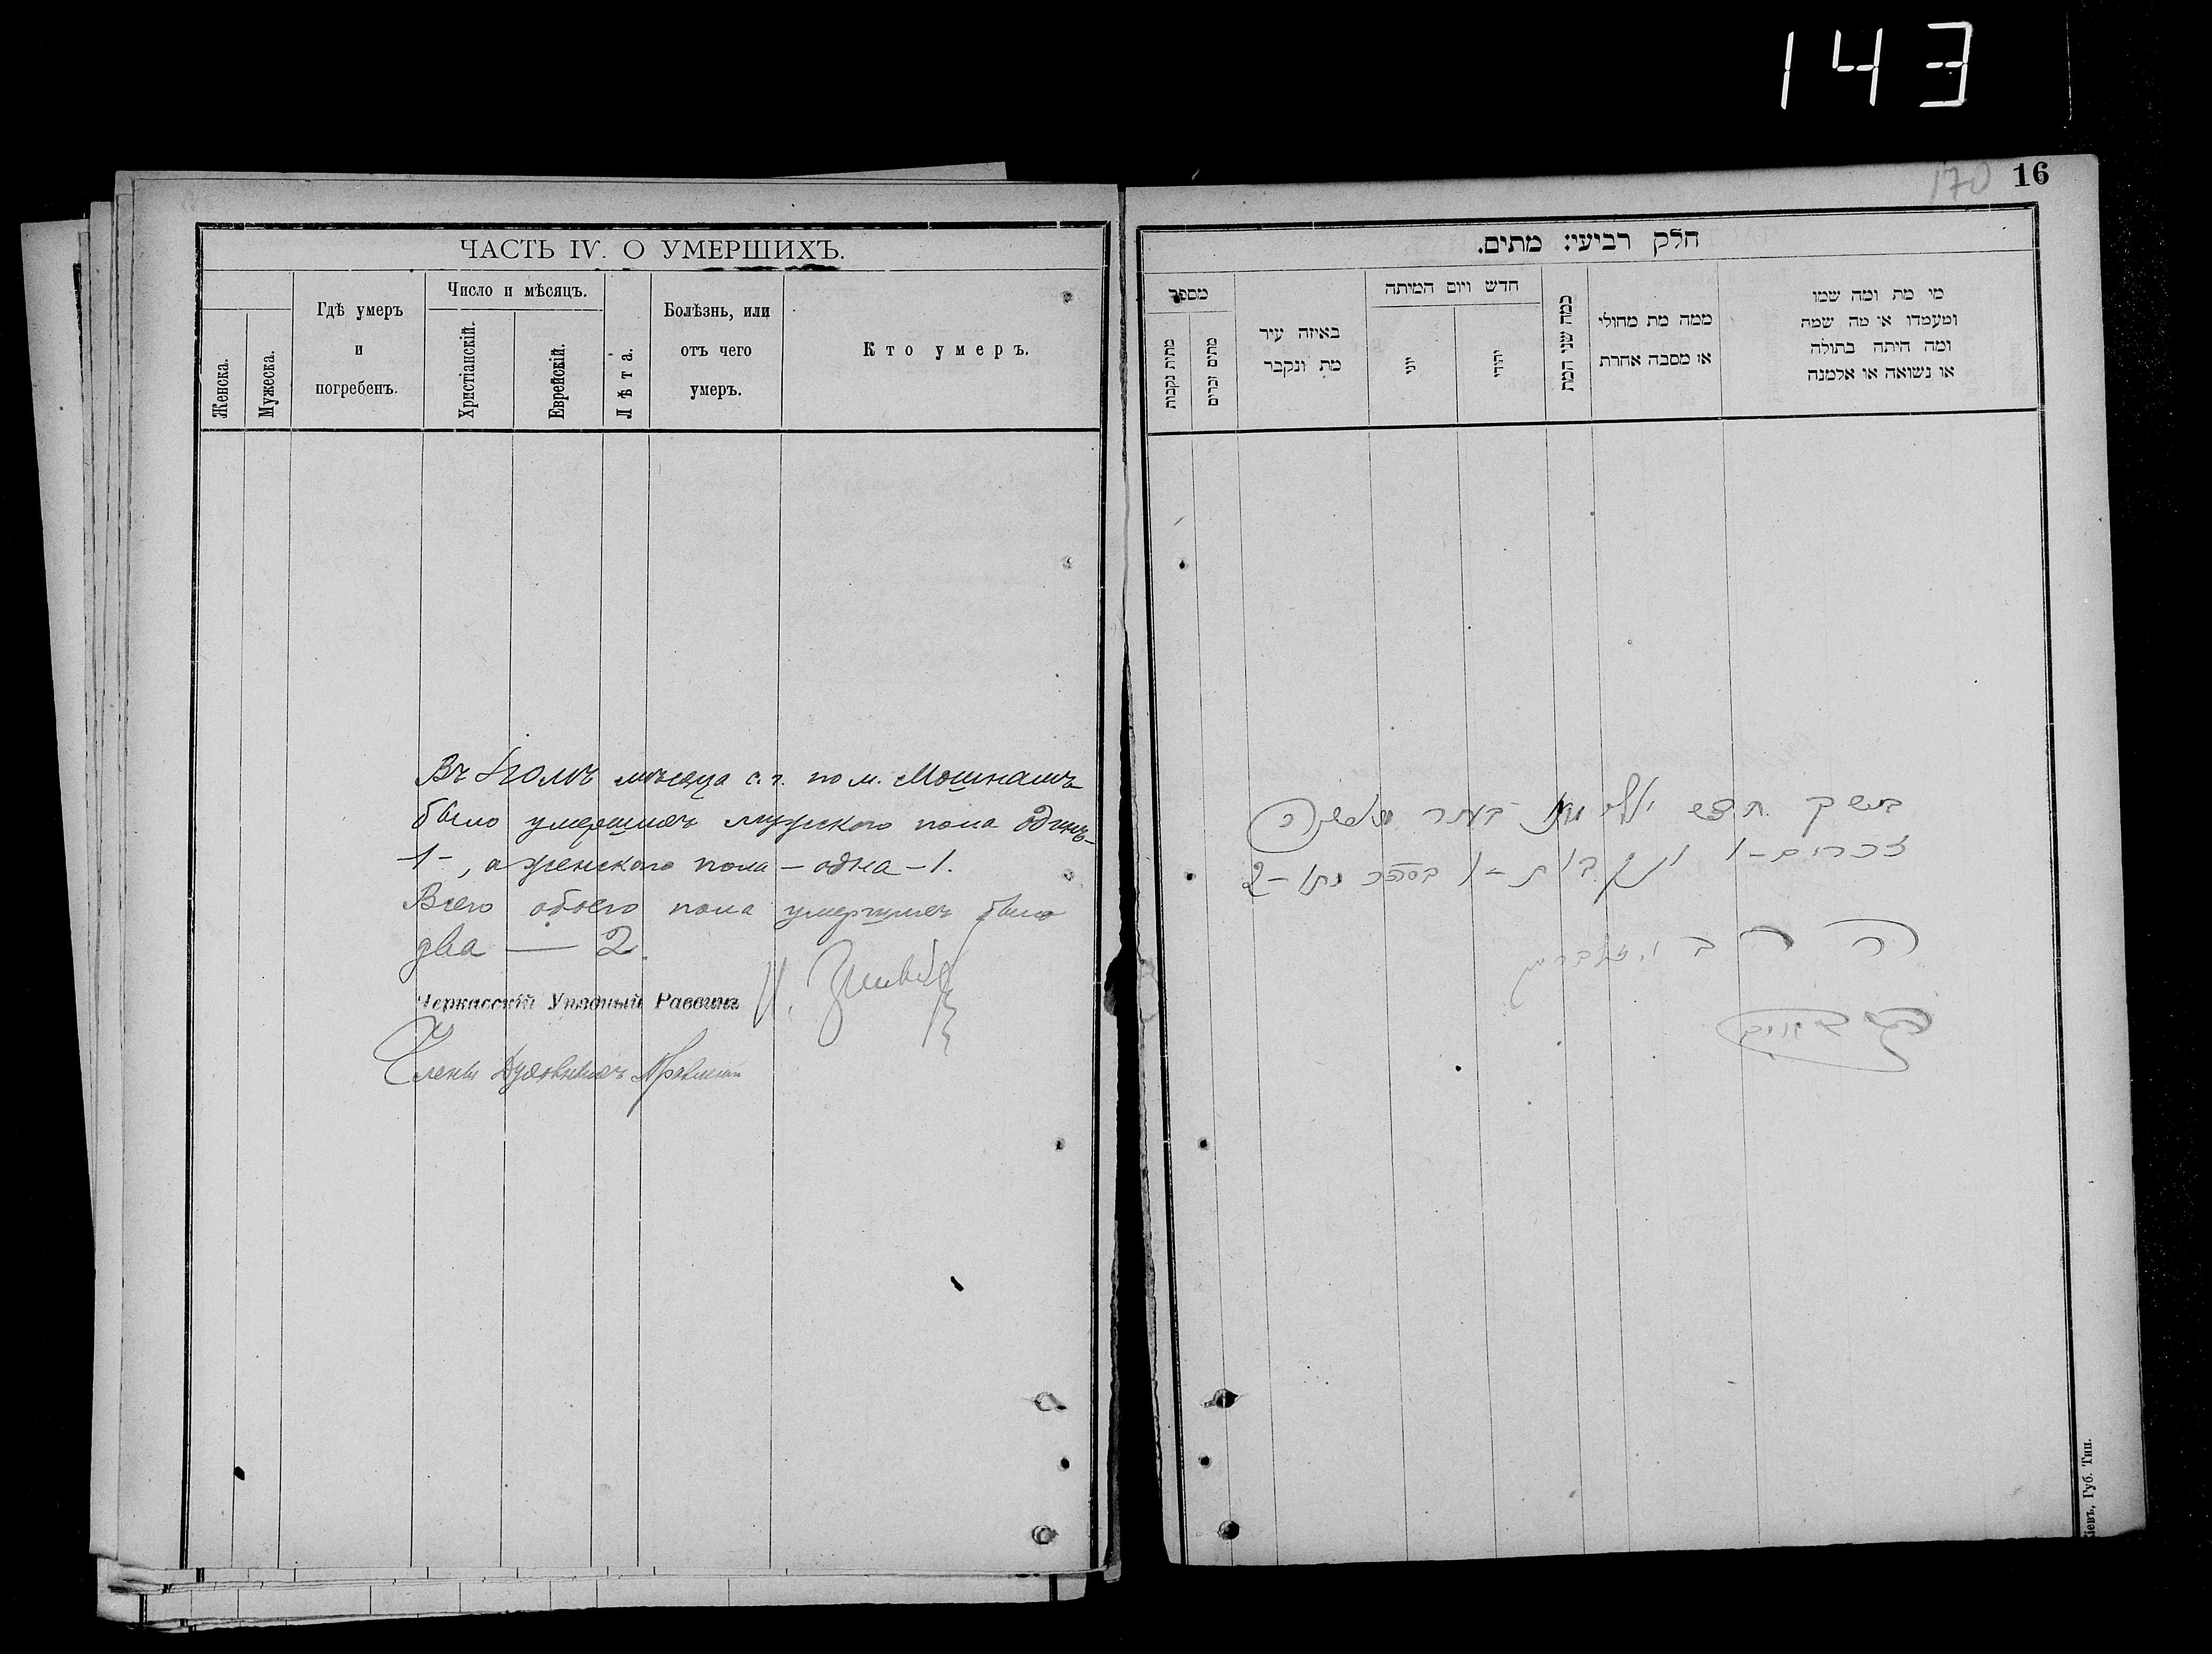 143
170 16
ЧАСТЬ IV. О УМЕРШИХЪ.
Женска.
Мужеска.
Гдѣ умеръ
и
погребенъ.
Число и мѣсяцъ.
Христіанскій.
Еврейскій.
Лѣта.
Болѣзнь, или
отъ чего
умеръ.
Кто умеръ.
Въ Іюлѣ мѣсяца с. г. по м. Мошнамъ
было умершихъ мужского пола одинъ-
-1-, а женского пола - одна - 1.
Всего обоего пола умершихъ было
два — 2.
Черкасскій Уѣздный Раввинъ
Члены Духовныхъ Правленій
חלק רביעי: מתים.
מספר
מתות נקבות
מתים זכרים
באיזה עיר
מת ונקבר
חדש ויום המיתה
יוני
יהודי
כמה שני המת
ממה מת מחולי
או מסבה אחרת
מי מת ומה שמו
ומעמדו או מה שמה
ומה היתה בתולה
או נשואה או אלמנה
במשך חדש יולי
זכרים - 1 ונקבות - 1 בסה״כ מתו - 2
הרב
Кіевъ, Губ. Тип.